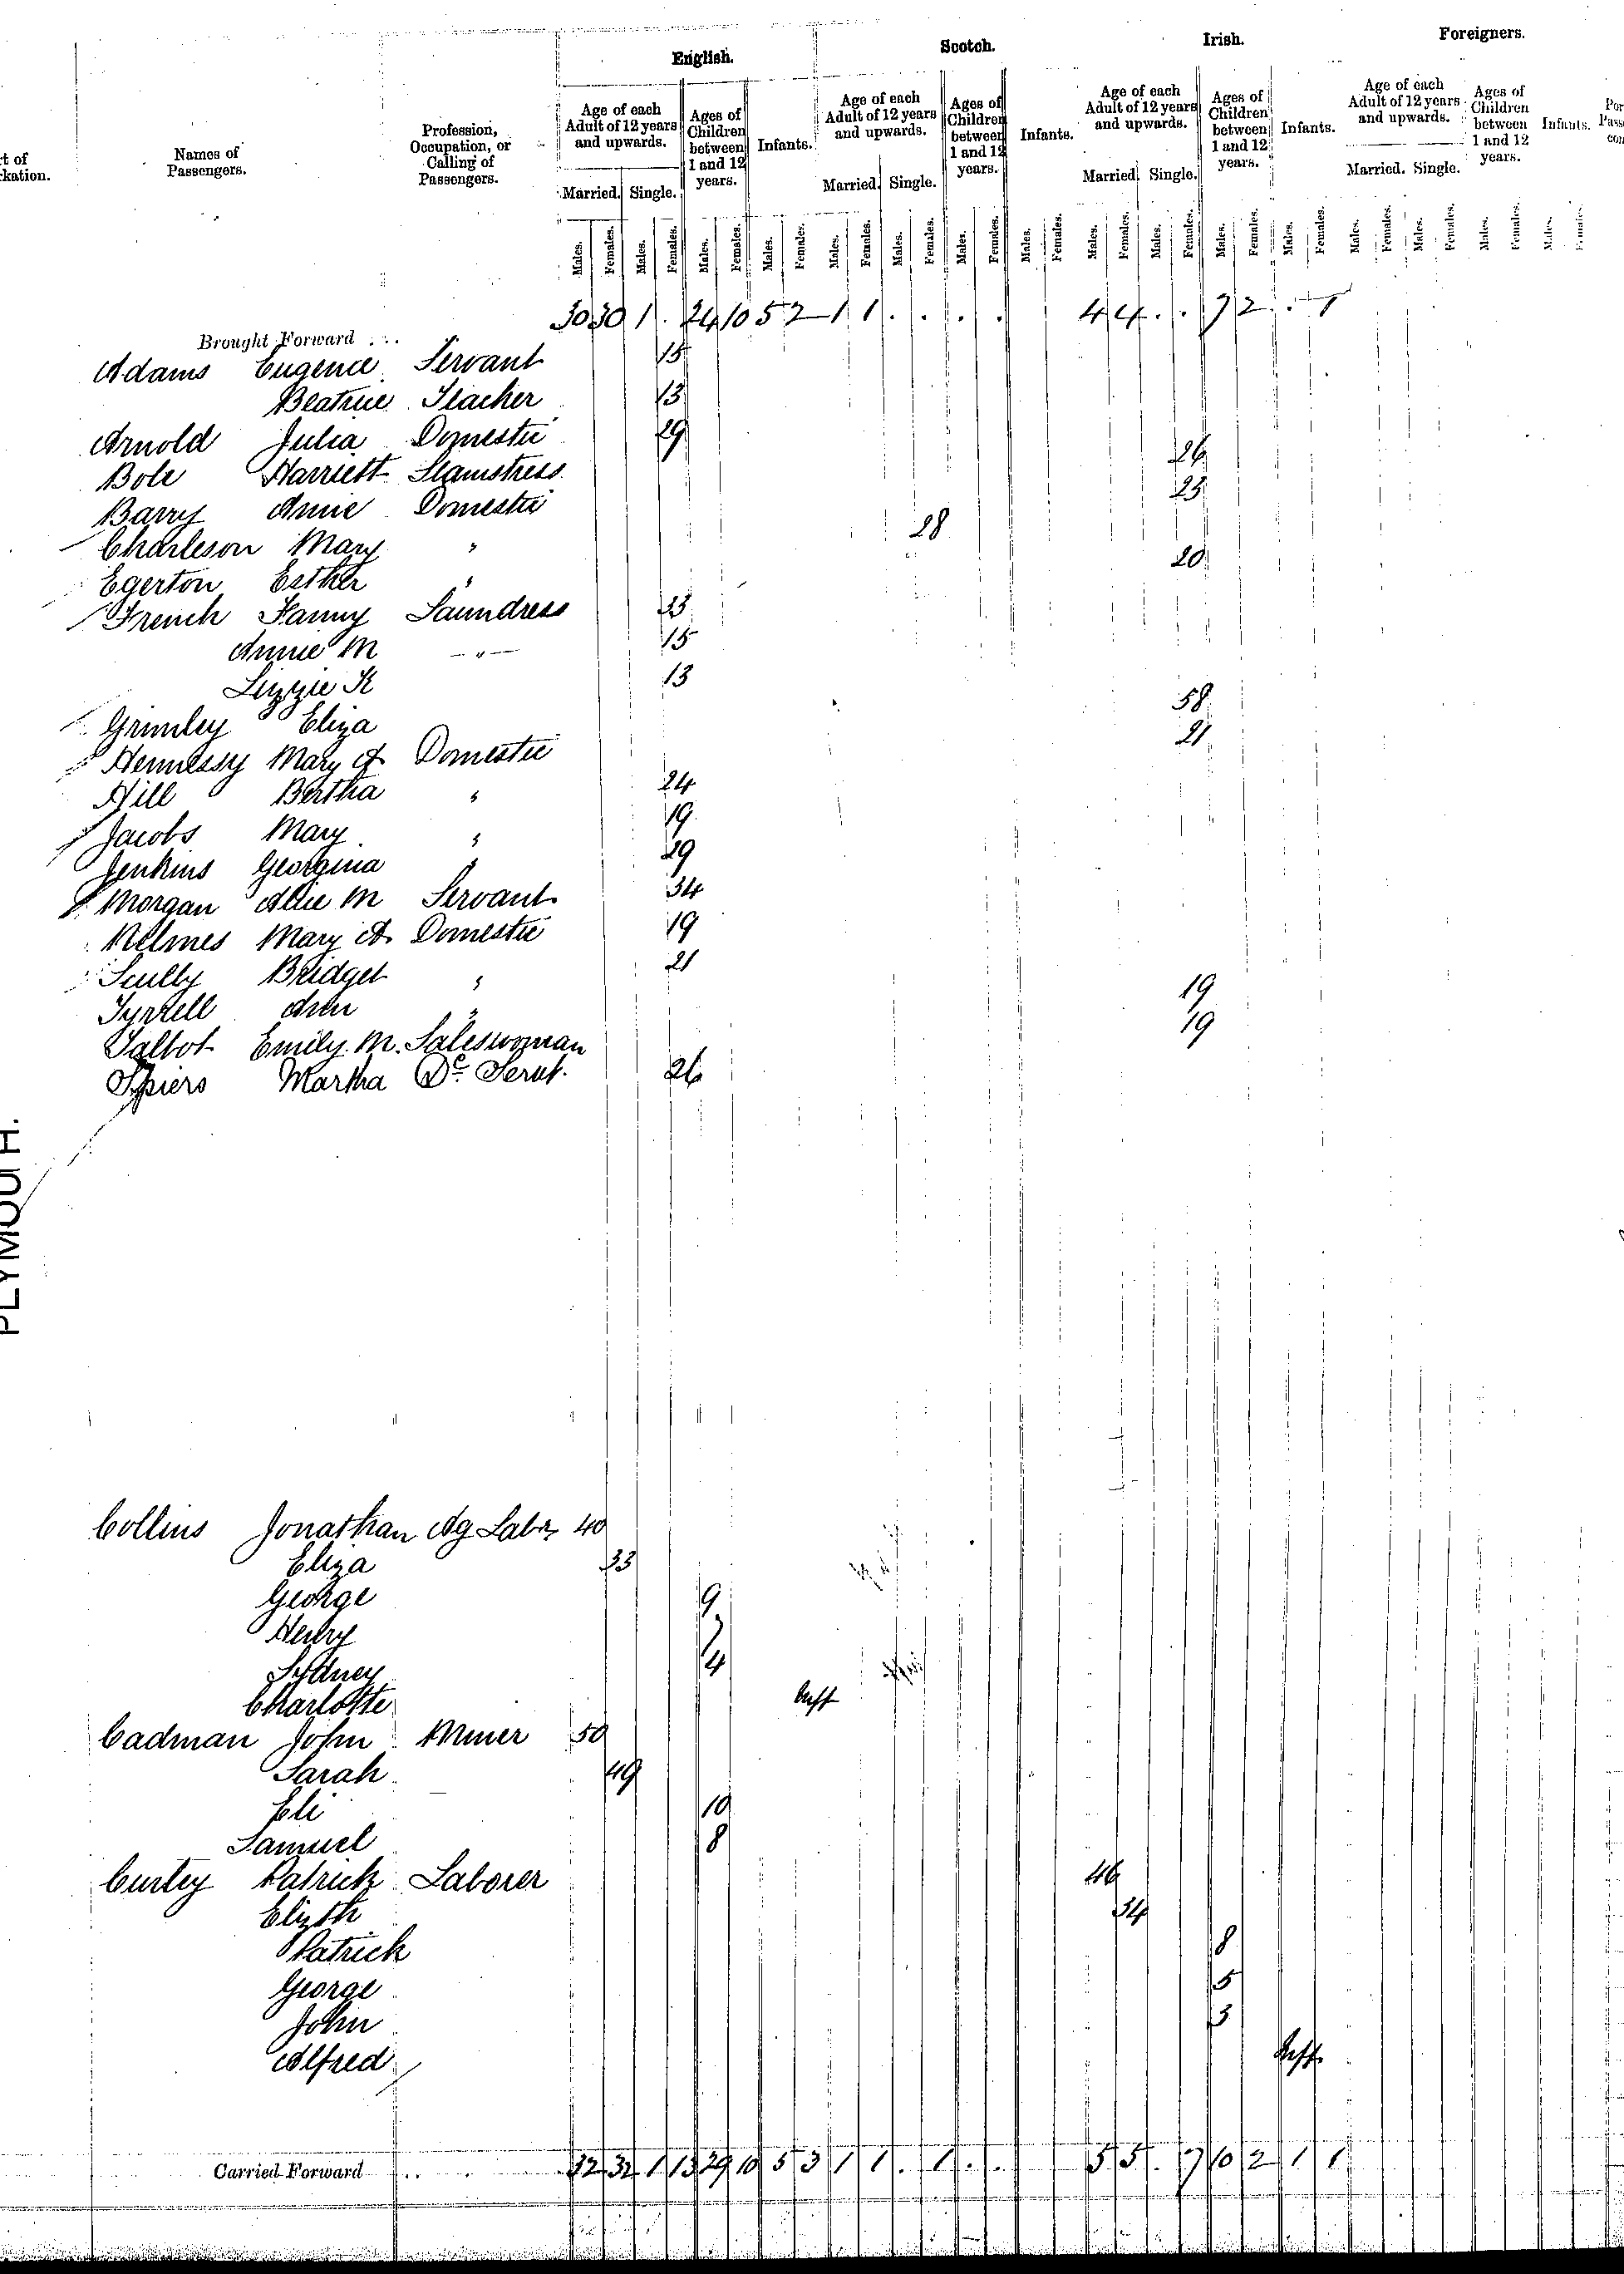 English. Scotch. Irish. Foreigners.
Age of each Adult of 12 years and upwards. Ages of Children between 1 and 12 years. Infants. Age of each Adult of 12 years and upwards. Ages of Children between 1 and 12 years. Infants. Age of each Adult of 12 years and upwards. Ages of Children between 1 and 12 years. Infants. Age of each Adult of 12 years and upwards. Ages of Children between 1 and 12 years. Infants.
t of kation. Names of Passengers. Profession, Occupation, or Calling of Passengers.
Married. Single. Married. Single. Married. Single. Married. Single.
Males. Females. Males. Females. Males. Females. Males. Females. Males. Females. Males. Females. Males. Females. Males. Females. Males. Females. Males. Females. Males. Females. Males. Females. Males. Females. Males. Females. Males. Females. Males. Females.
Brought Forward 30 30 1 . 24 10 5 2 1 1 . . . . 4 4 . . 7 2 . 1
Adams Eugenie Servant 15
Beatrice Teacher 13
Arnold Julia Domestic 29
Bole Harriett Seamstress 26
Barry Annie Domestic 23
Charleson Mary " 28
Egerton Esther " 20
French Fanny Laundress 25
Annie M " 15
Lizzie K 13
Grimley Eliza 58
Hennessy Mary A Domestic 21
Hill Bertha " 24
Jacobs Mary " 19
Jenkins Georgina " 29
Morgan Allie M Servant 34
Melmes Mary A. Domestic 19
Scully Bridget " 21
Tyrrell Ann " 19
Talbot Emily M. Saleswoman 19
Spiers Martha Do. Servt. 26
PLYMOUTH.
Collins Jonathan Ag Labr 40
Eliza 33
George 9
Henry
Sydney 4
Charlotte Inft
Cadman John Miner 50
Sarah 49
Eli 10
Samuel 8
Curley Patrick Laborer 46
Elizth 34
Patrick 8
George 5
John 3
Alfred Inft
Carried Forward 32 32 1 13 29 10 5 3 1 1 . 1 . . 5 5 . 7 10 2 1 1